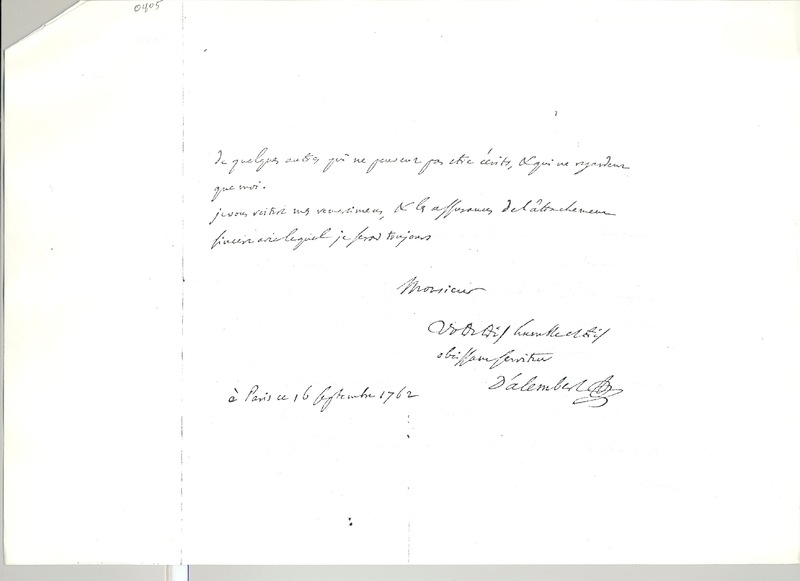 0405
de quelques autres qui ne peuvent pas être écrits, & qui ne regardent
que moi.
je vous réitère mes remercimens, & les assurances de l'attachement
sincere avec lequel je serai toujours
Monsieur
Votre très humble et très
obéissant serviteur
D'alembert
à Paris ce 16 septembre 1762